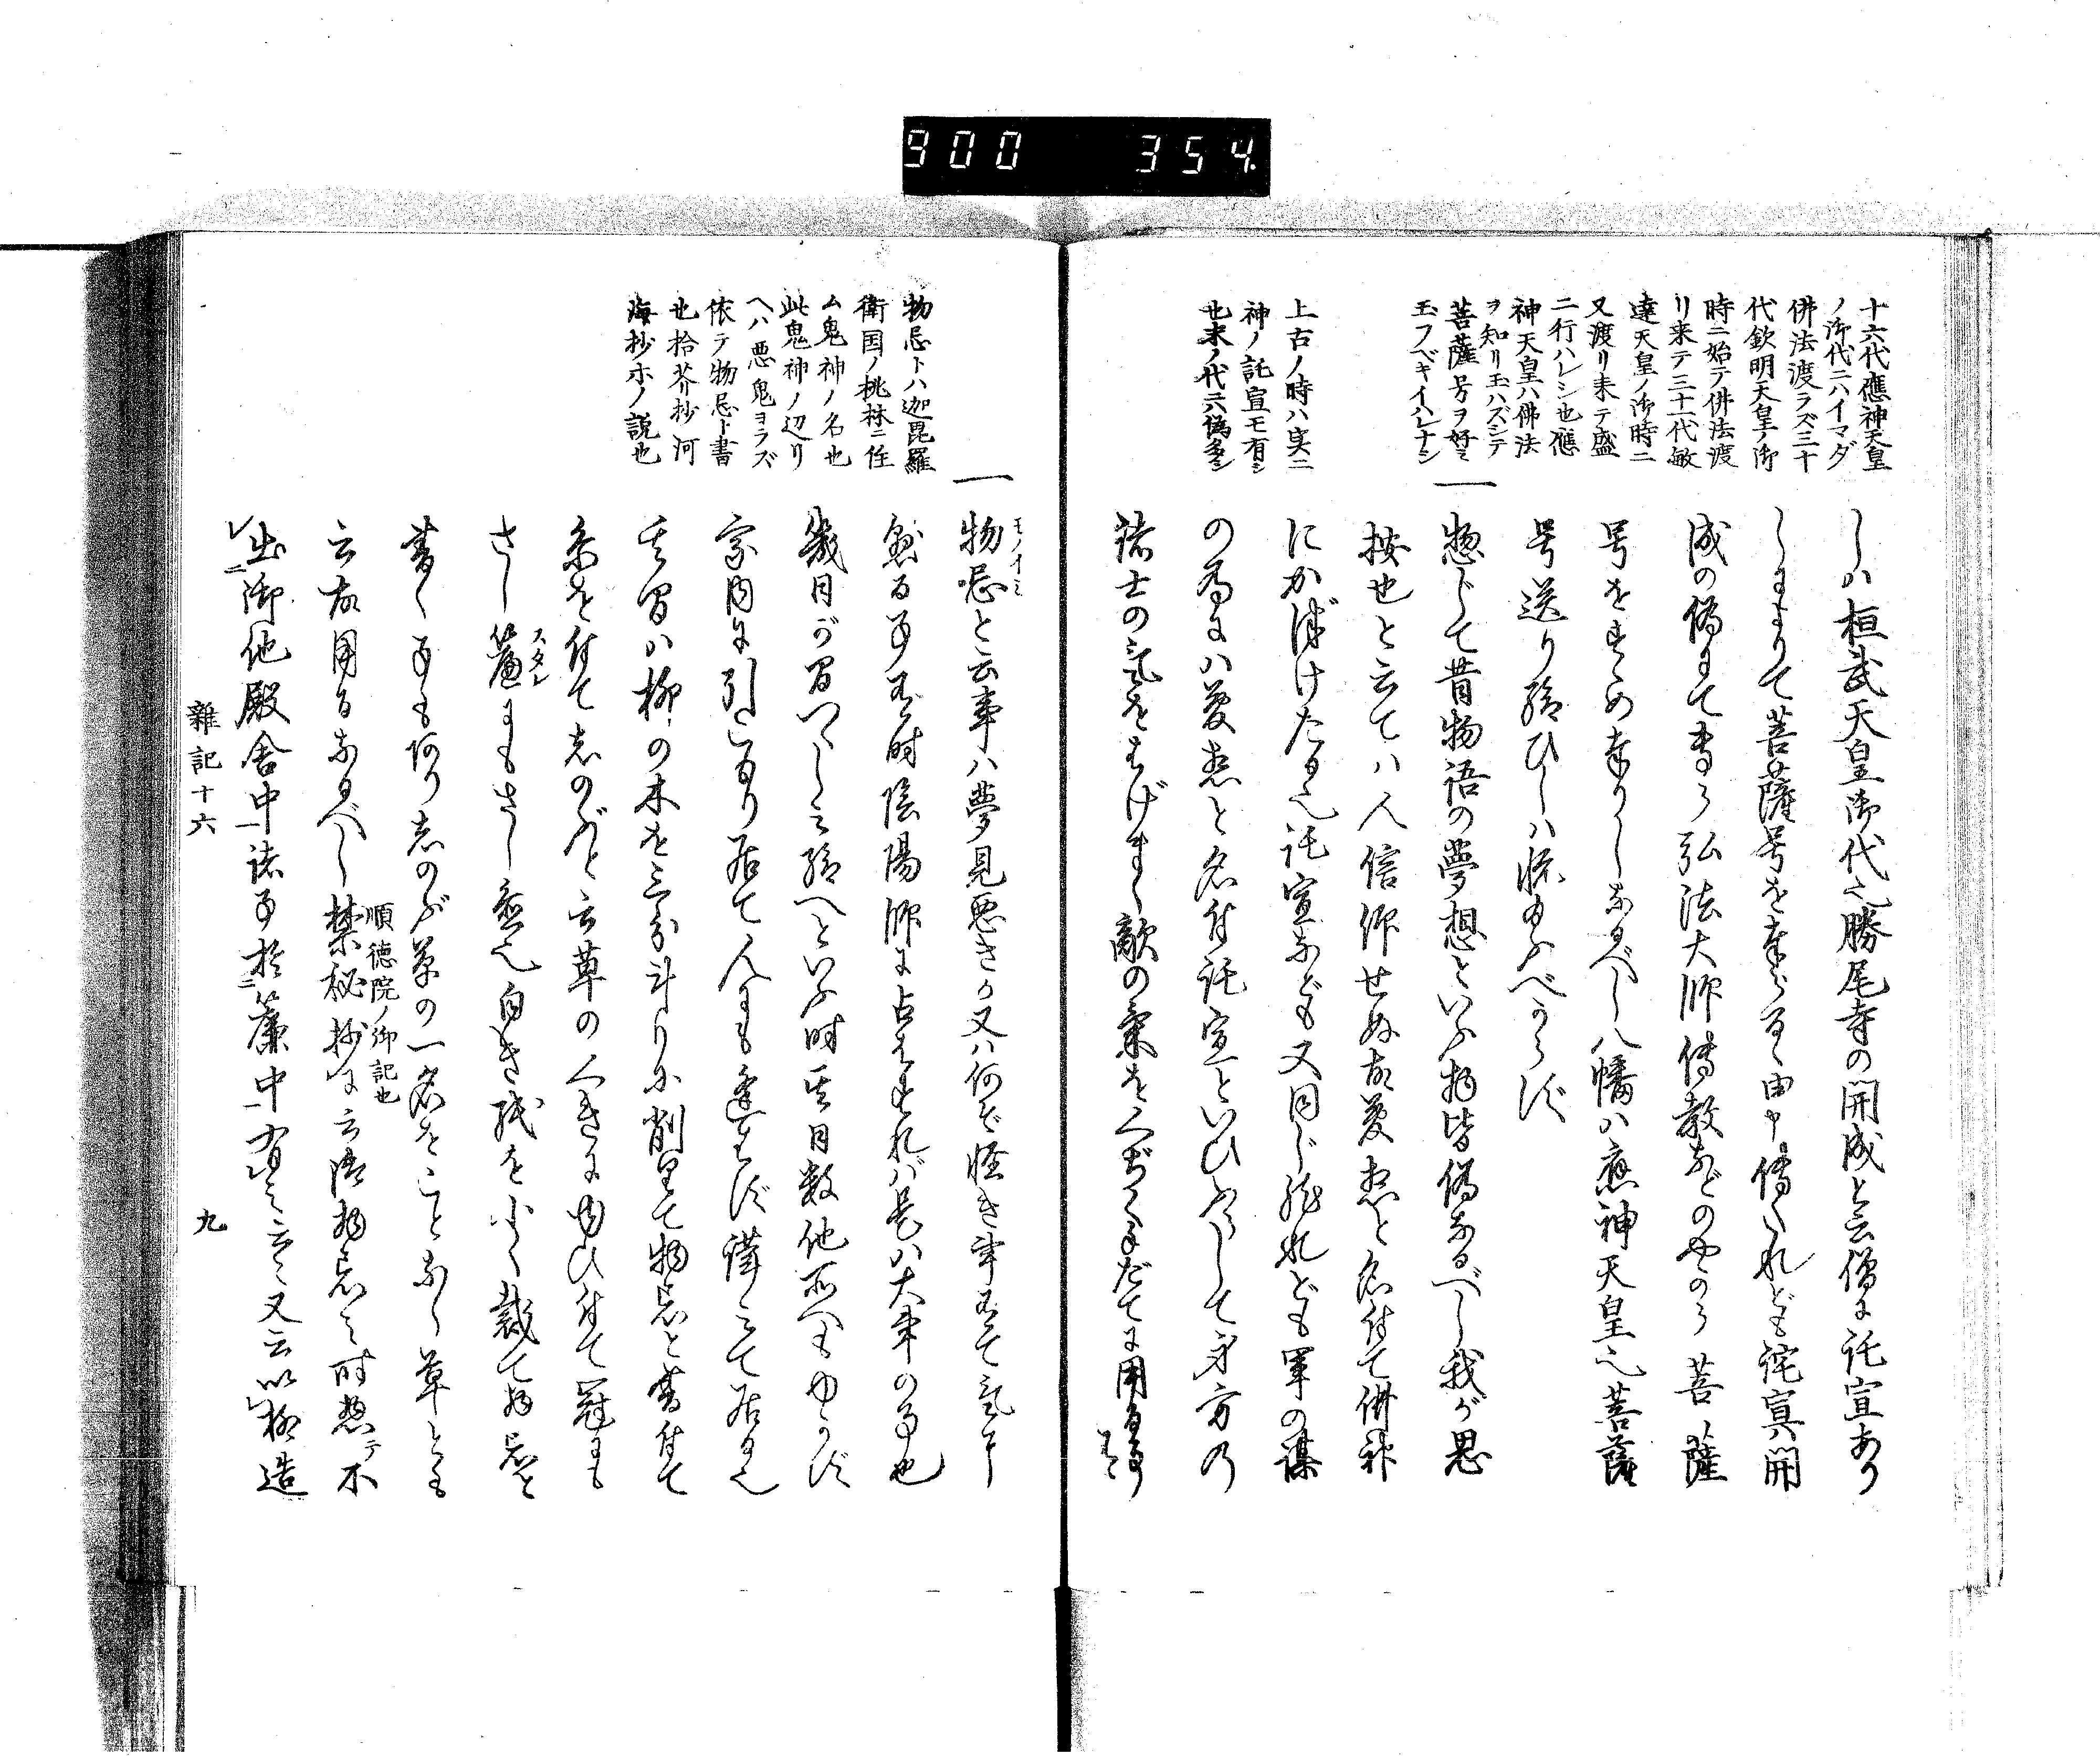 900 354.
十六代應神天皇
ノ御代ニハイマダ
佛法渡ラズ三十
代欽明天皇ノ御
時ニ始テ佛法渡
リ来テ三十一代敏
達天皇ノ御時ニ
又渡リ来テ盛
ニ行ハレシ也應
神天皇ハ佛法
ヲ知リ玉ハズシテ
菩薩号ヲ好ミ
玉フベキイハレナシ
上古ノ時ハ実ニ
神ノ託宣モ有シ
也末ノ代ニハ偽多シ
しハ桓武天皇御代也勝尾寺の開成と云僧に託宣あり
しによりて菩薩号を奉らるゝ由申傳たれども託宣ハ開
成の偽にて専ら弘法大師傳教などのやから菩薩
号をすゝめ奉りしなるべし八幡ハ應神天皇也菩薩
号送り給ひしハ悦給ふべからず
一 惣じて昔物語の夢想といふ物皆偽なるべし我が思
按也と云てハ人信仰せぬ故夢想と名付て佛神
にかづけたる也託宣なども又同じ然れども軍の謀
の為にハ夢想と名付託宣といひふらして身方の
諸士の氣をはげまし敵の氣をくぢく手だてに用る事
物忌トハ迦毘羅
衛国ノ桃林ニ住
ム鬼神ノ名也
此鬼神ノ辺リ
ヘハ悪鬼ヨラズ
依テ物忌ト書
也拾芥抄河
海抄ホノ説也
一 物忌モノイミと云事ハ夢見悪きか又ハ何ぞ怪き事有て氣に
懸る事有時陰陽師に占はすれバ是ハ大事の事也
幾日が間つゝしみ給へといふ時其日数他所へもゆかず
家内に引こもり居て人にも逢はず謹みて居る也
其間ハ柳の木を三分計りに削りて物忌と書付て
糸を付てしのぶと云草のくきにゆひ付て冠にも
さし簾スダレにもさし置也白き紙を小く裁て物忌と
書く事も有りしのぶ草の一名をことなし草とも
云故用るなるべし禁秘抄順徳院ノ御記也に云御物忌之時惣テ不
レ出ニ御他殿舎中一諸事於ニ簾中一有之云々又云以レ柳造
雜記十六
九